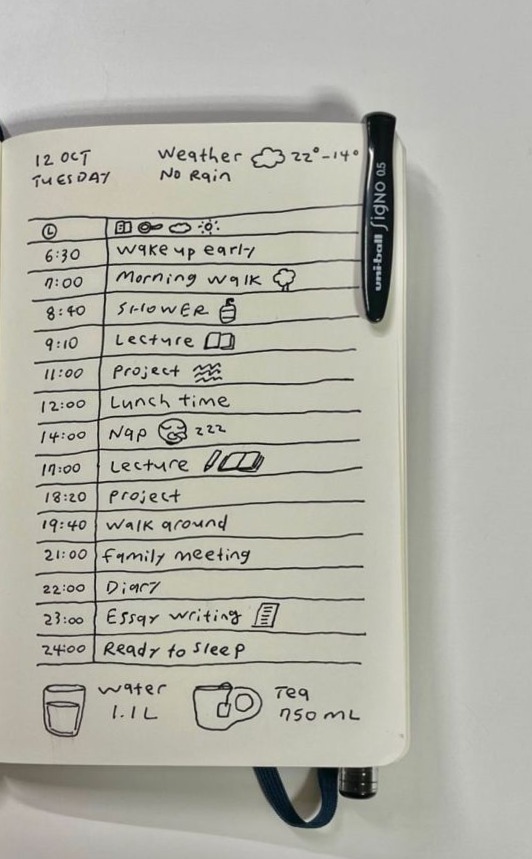 12 OCT
TUESDAY
Weather 22°-14°
No Rain
6:30 Wake up early
7:00 Morning walk
8:40 SHOWER
9:10 Lecture
11:00 Project
12:00 Lunch time
14:00 Nap zzz
17:00 Lecture
18:20 Project
19:40 Walk around
21:00 family meeting
22:00 Diary
23:00 Essay writing
24:00 Ready to sleep
Water
1.1 L
Tea
750 mL
uni-ball SigNO 0.5